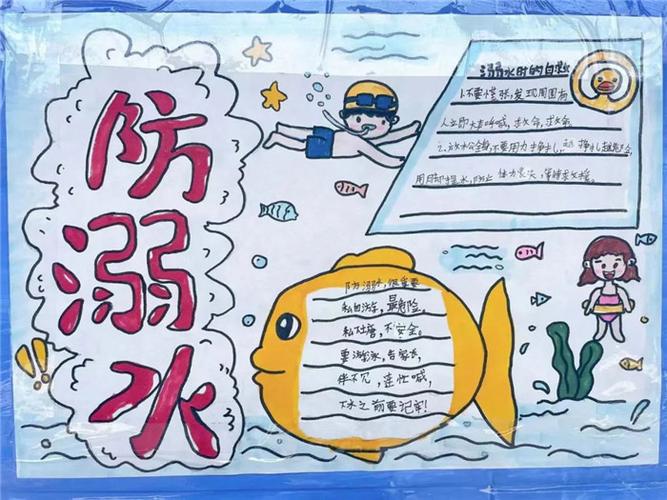 防溺水
溺水时的自救
1.不要慌张,发现周围有
人立即大声呼喊,救命,救命。
2.放松全身,不要用力挣扎,
用脚踢水,防止体力丧失,等待救援。
防溺水,很重要
私自游,最危险。
私吐塘,不安全。
要游泳,告家长,
伴不见,连忙喊,
下水之前要记牢!